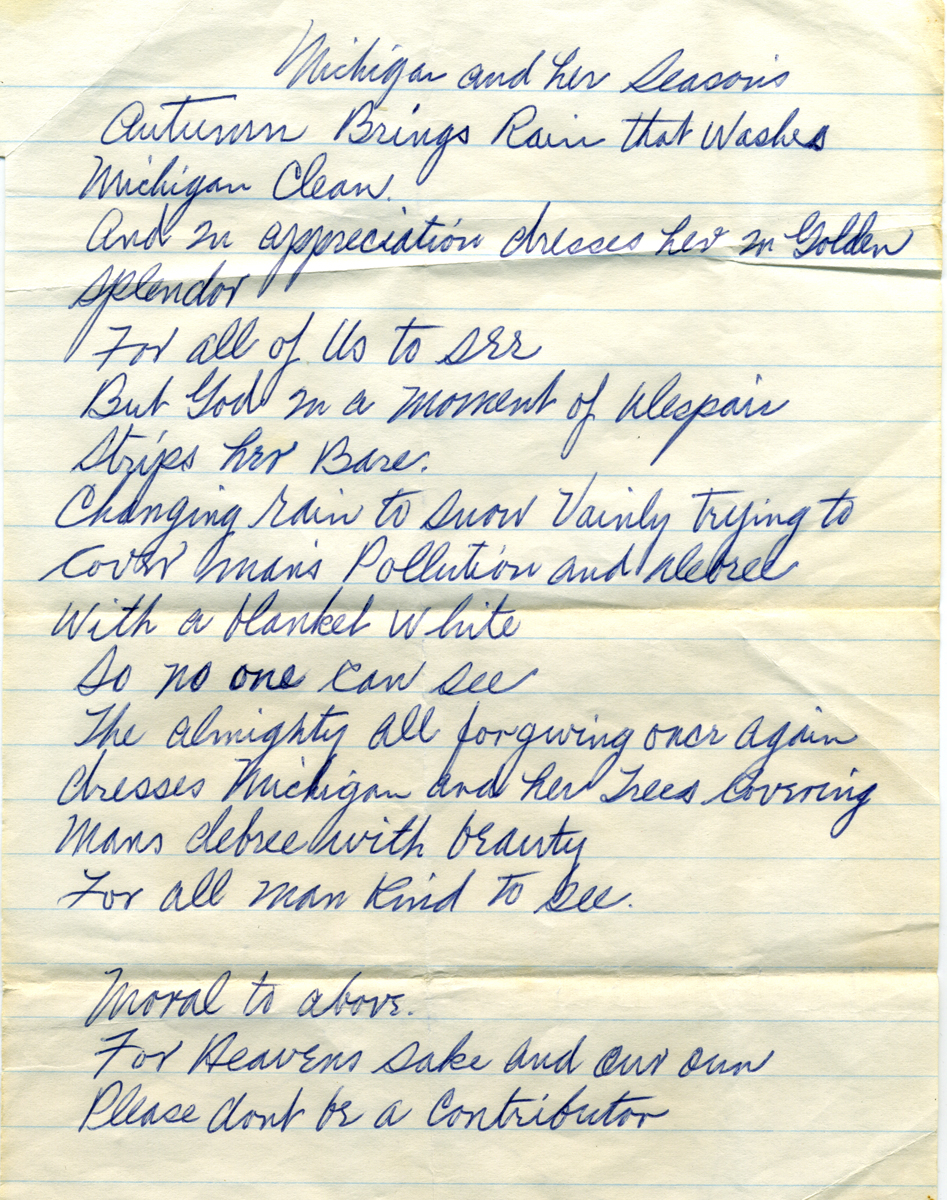 Michigan and her Seasons
Autumn Brings Rain that Washes
Michigan Clean.
And in appreciation dresses her in Golden
splendor
For all of Us to see
But God in a moment of despair
Strips her Bare.
Changing rain to snow Vainly trying to
cover man's Pollution and debree
With a blanket white
So no one can see
The almighty all forgiving once again
dresses Michigan and her Trees Covering
Mans debree with beauty
For all man Kind to see.
Moral to above.
For Heavens sake and our own
Please dont be a Contributor